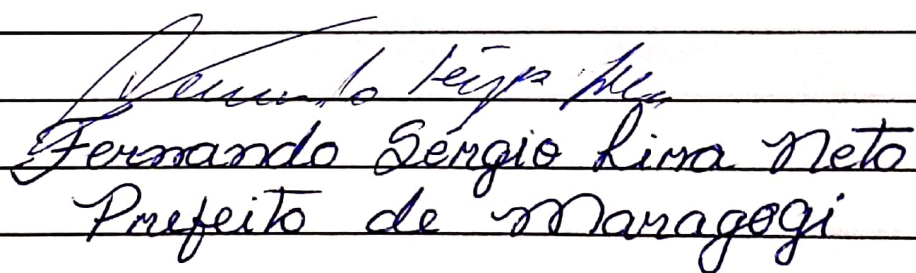 Fernando Sérgio Lira Neto
Prefeito de Maragogi